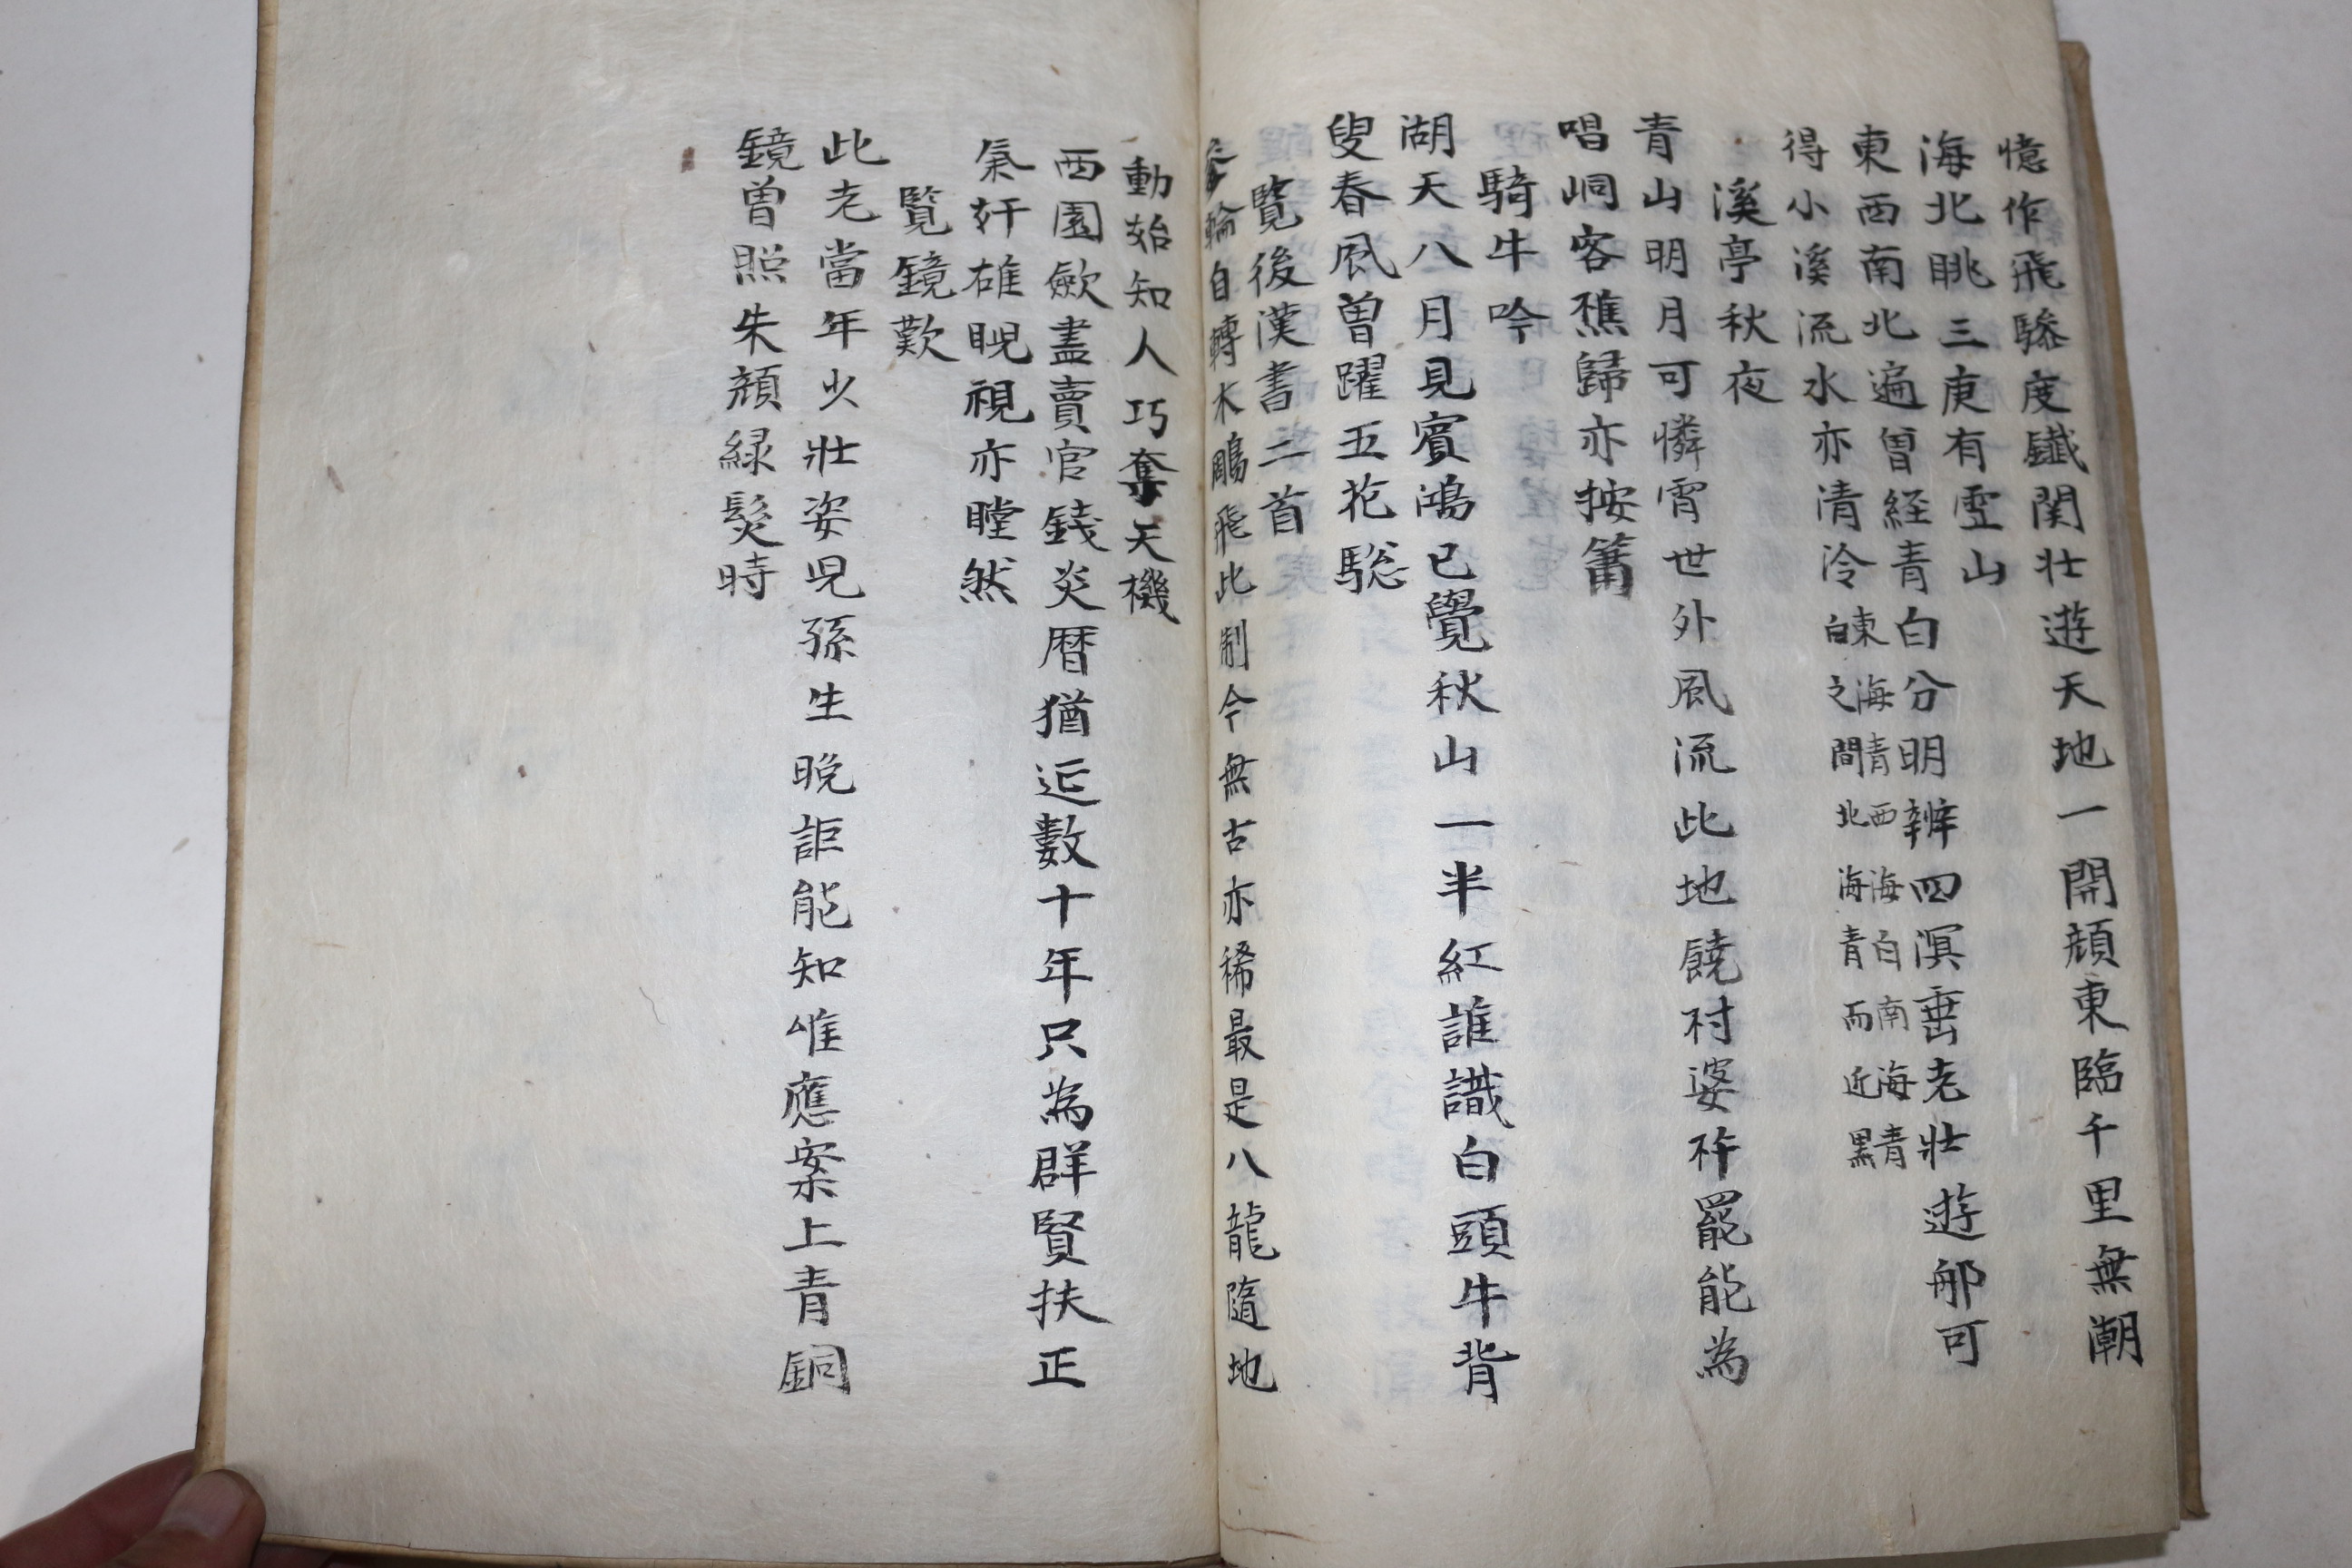 憶作飛驂度鐵関壮遊天地一開顔東臨千里無潮
海北眺三庚有雪山
東西南北遍曽経青白分明辨四溟垂老壮遊那可
得小溪流水亦清冷
東海青西海白南海青
白之間北海青而近黒
溪亭秋夜
青山明月可憐宵世外風流此地饒村婆杵罷能為
唱峒客樵歸亦按簫
騎牛吟
湖天八月見賓鴻已覺秋山一半紅誰識白頭牛背
叟春風曽躍五花驄
覧後漢書二首
輪自轉木鵰飛此制今無古亦稀最是八龍隨地
動始知人巧奪天機
西園歛盡賣官錢炎暦猶延數十年只為群賢扶正
氣奸雄睨視亦瞠然
覧鏡歎
此老當年少壮姿児孫生晩詎能知惟應案上青銅
鏡曽照朱顔緑髮時